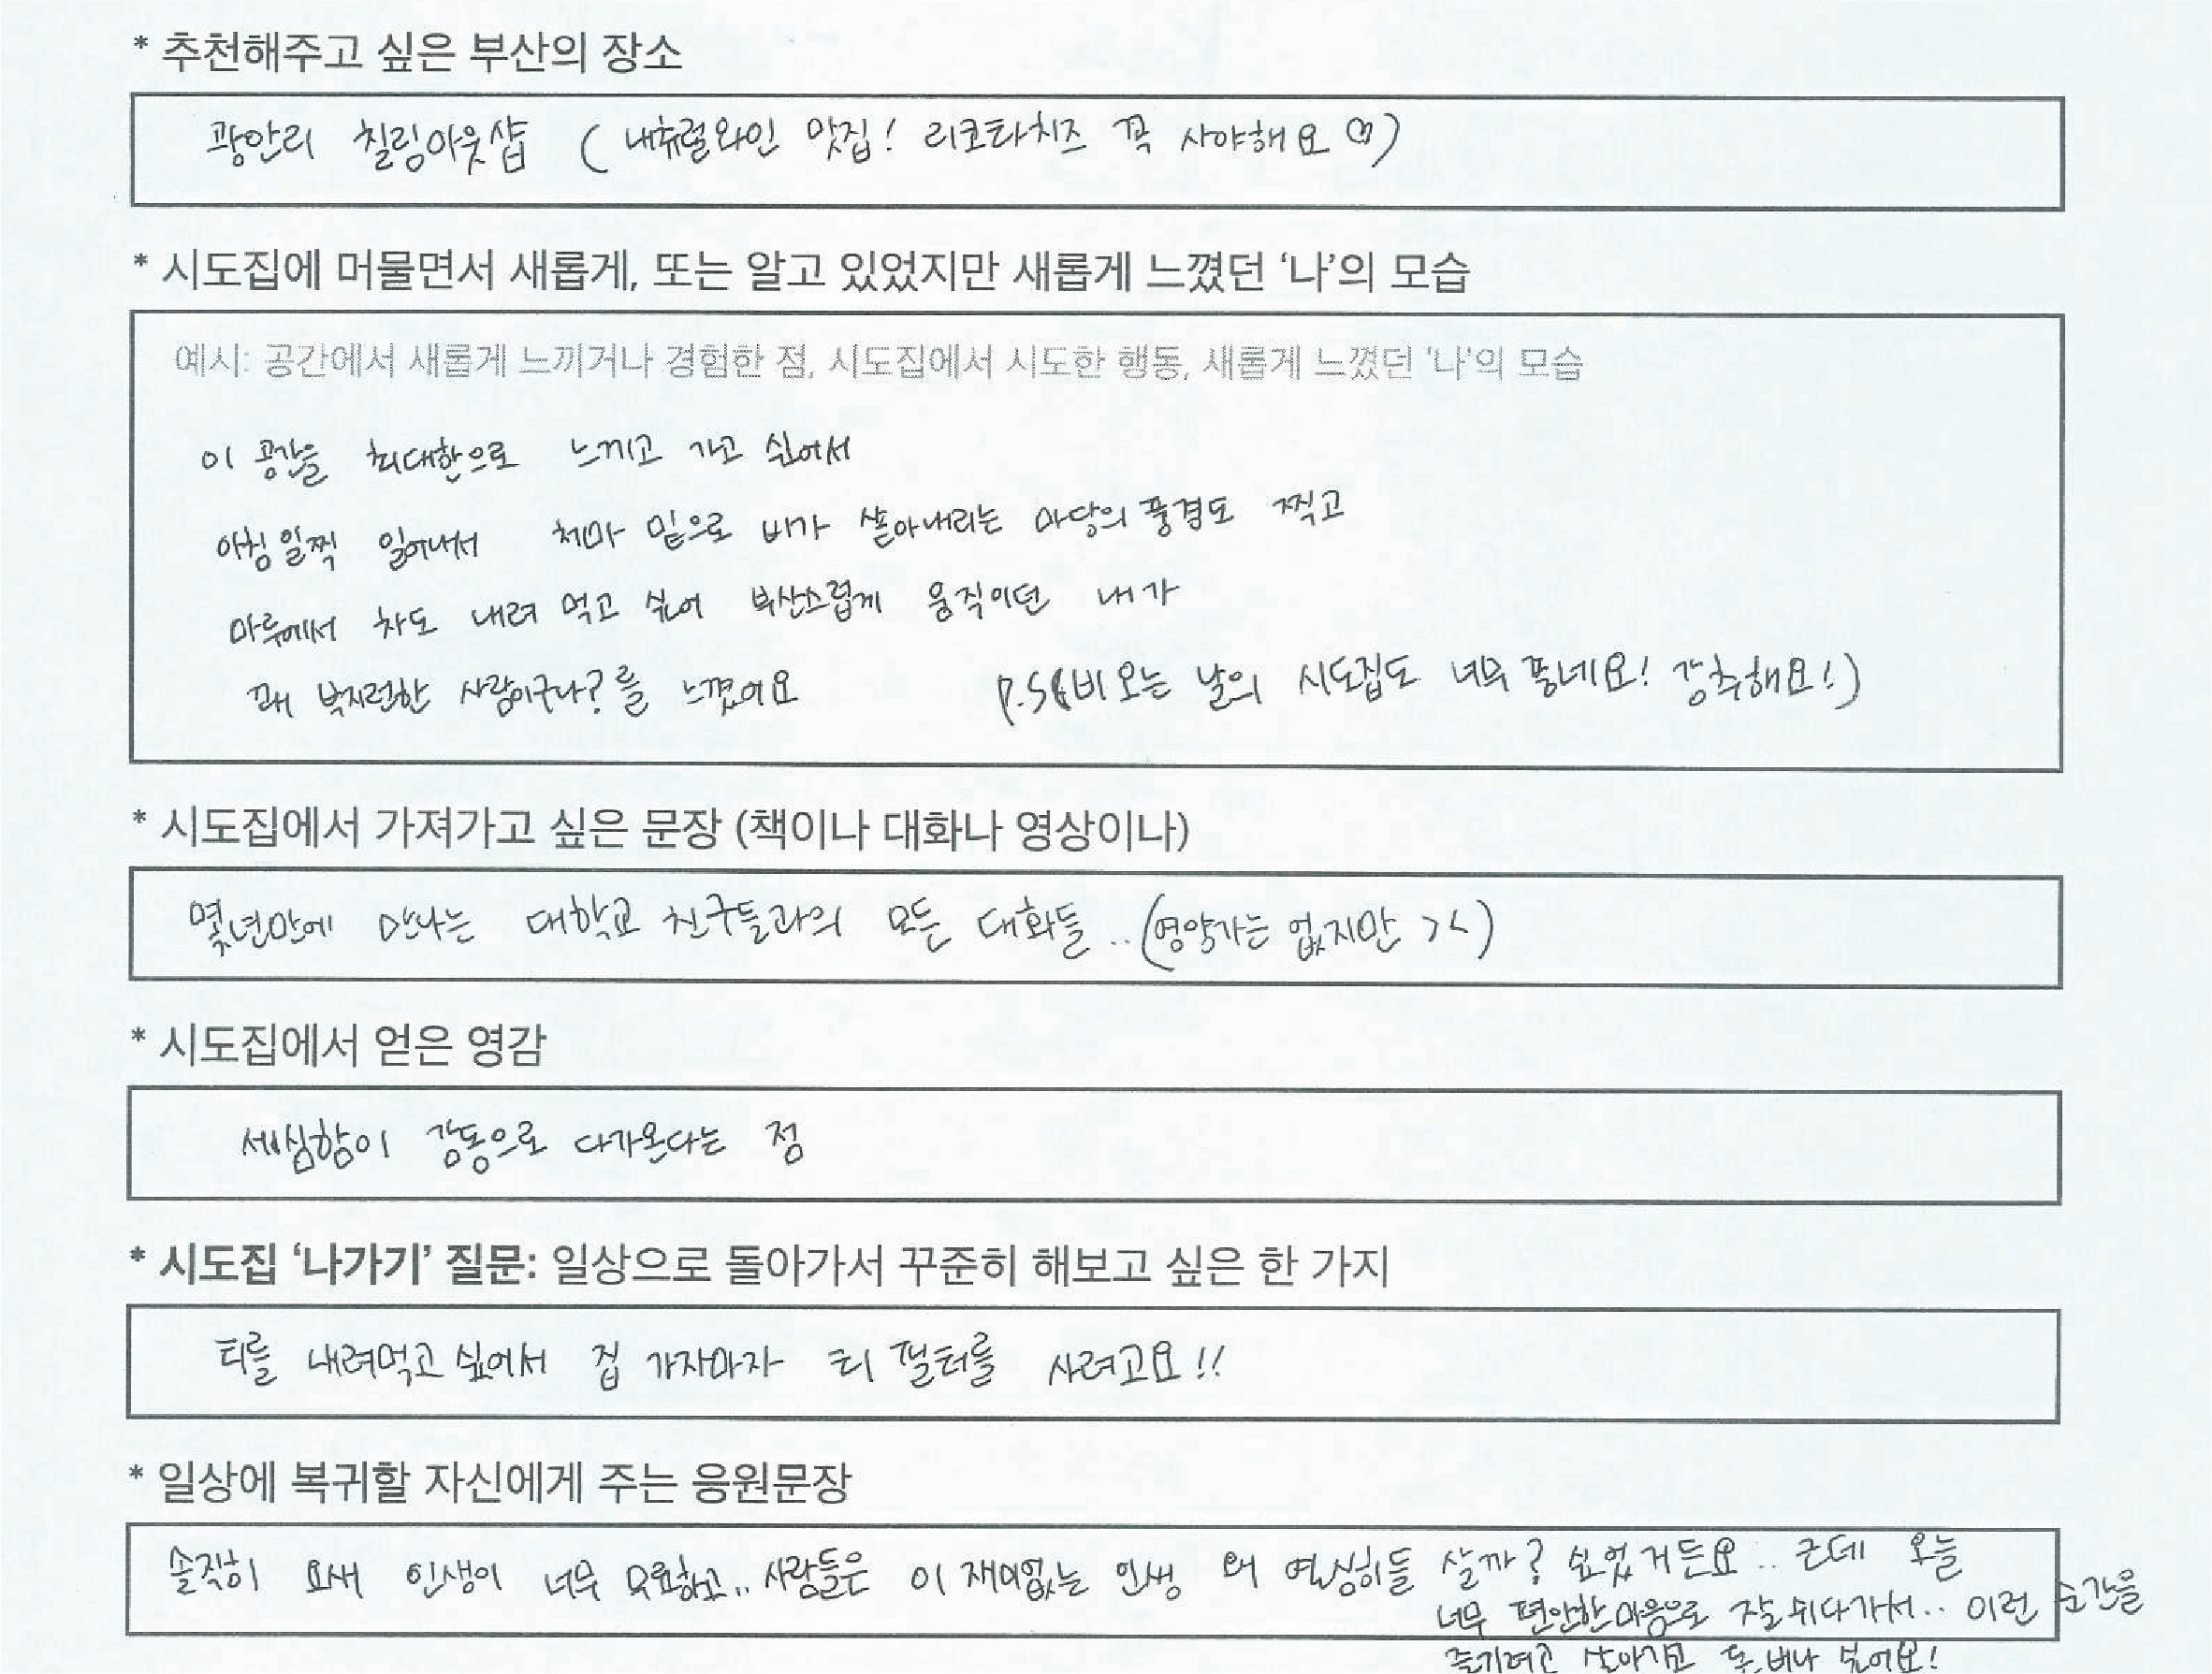 * 추천해주고 싶은 부산의 장소
광안리 칠링아웃샵 ( 내츄럴와인 맛집! 리코타치즈 꼭 사야해요 ♡)
* 시도집에 머물면서 새롭게, 또는 알고 있었지만 새롭게 느꼈던 '나'의 모습
예시: 공간에서 새롭게 느끼거나 경험한 점, 시도집에서 시도한 행동, 새롭게 느꼈던 '나'의 모습
이 공간을 최대한으로 느끼고 가고 싶어서
아침 일찍 일어나서 처마 밑으로 비가 쏟아내리는 마당의 풍경도 찍고
마루에서 차도 내려 먹고 싶어 부산스럽게 움직이던 내가
꽤 부지런한 사람이구나? 를 느꼈어요 P.S(비 오는 날의 시도집도 너무 좋네요! 강추해요!)
* 시도집에서 가져가고 싶은 문장 (책이나 대화나 영상이나)
몇년만에 만나는 대학교 친구들과의 모든 대화들.. (영양가는 없지만 ><)
* 시도집에서 얻은 영감
세심함이 감동으로 다가온다는 점
* 시도집 '나가기' 질문: 일상으로 돌아가서 꾸준히 해보고 싶은 한 가지
티를 내려먹고 싶어서 집 가자마자 티 필터를 사려고요!!
* 일상에 복귀할 자신에게 주는 응원문장
솔직히 요새 인생이 너무 무료하고.. 사람들은 이 재미없는 인생 왜 열심히들 살까? 싶었거든요.. 근데 오늘
너무 편안한 마음으로 잘 쉬다가서.. 이런 순간을
즐기려고 살아가고 싶어요!